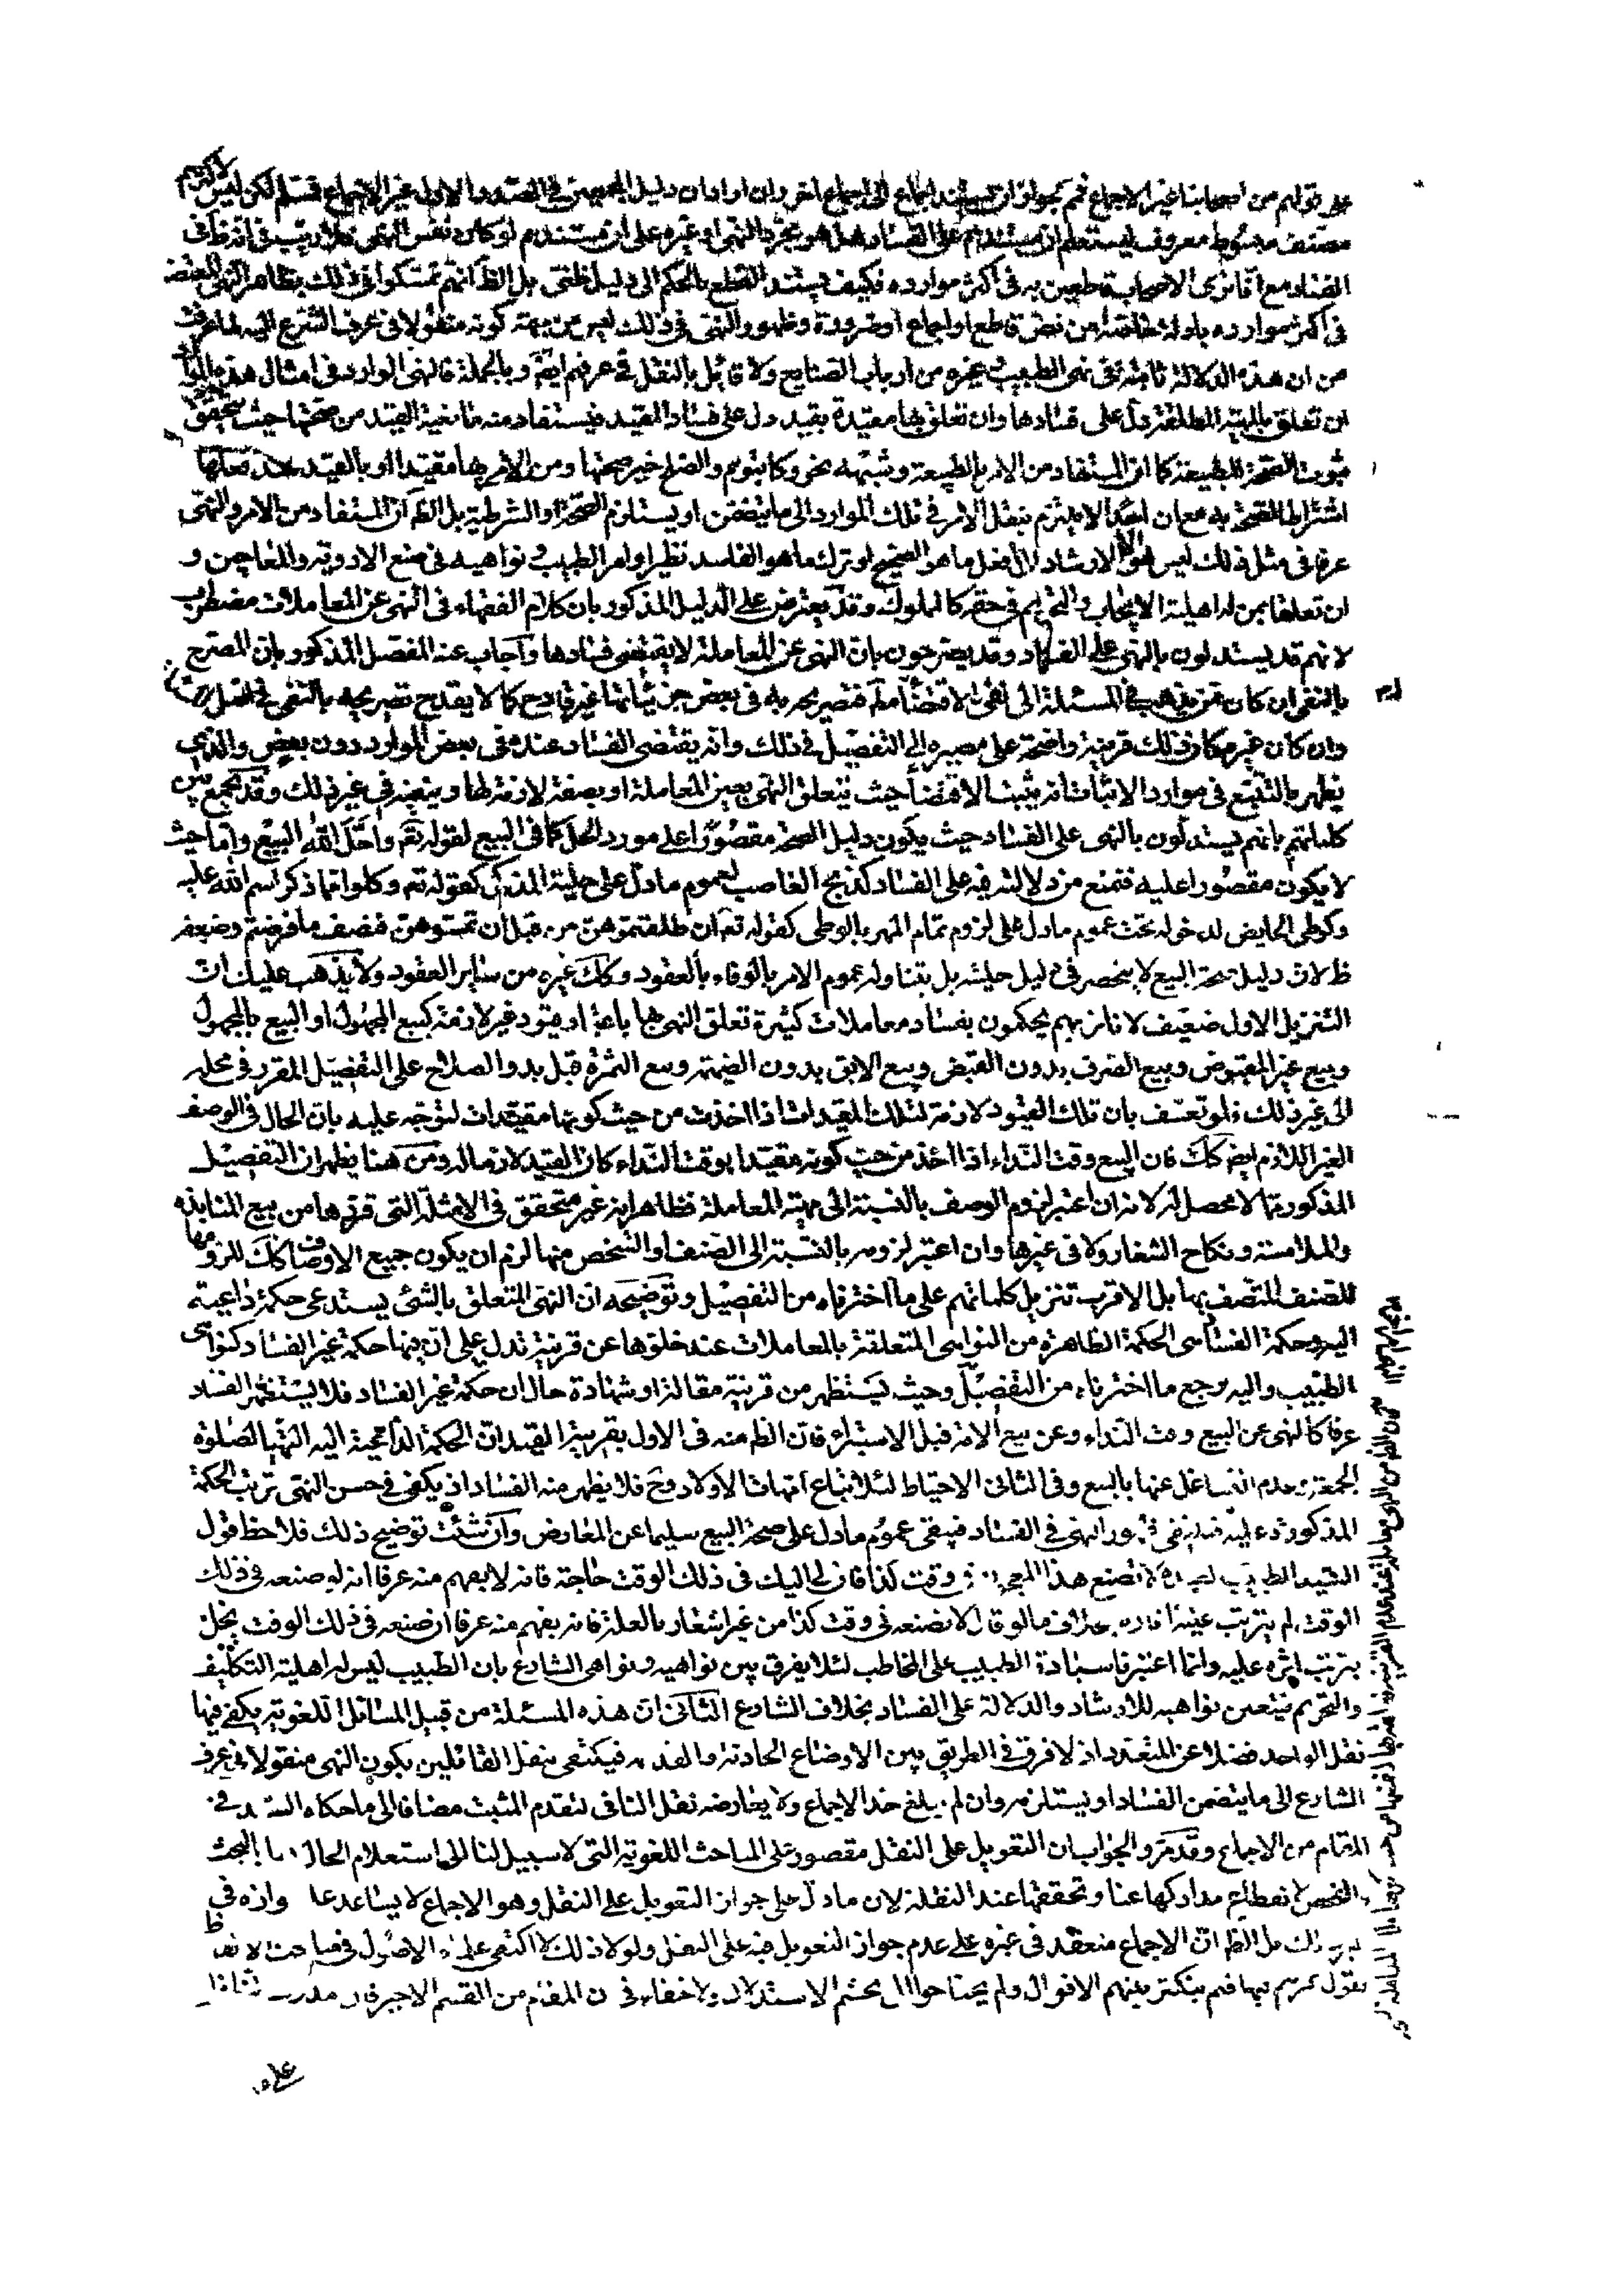 من اصحابنا غير الاجماع فلم يجوزوا ان يستند اجماع الى اجماع اخر وان اراد ان دليل المجمعين في الصدر الاول غير الاجماع فمسلم لكن ليس لاكثرهم
مصنف مبسوط معروف ليستعلم ان مستندهم على الفساد هل هو مجرد النهى او غيره على ان مستندهم لو كان نفس النهى فلا ريب في انه ظاهر في
الفساد مع انا نرى الاصحاب قاطعين به في اكثر موارده فكيف يستند القطع بالحكم الى دليل ظني بل الظ انهم تمسكوا في ذلك بظاهر النهى المعتضد
في اكثر موارده بادلة خاصة من نص قاطع او اجماع او ضرورة وظهور النهى في ذلك ليس من جهة كونه منقولا في عرف الشرع اليه لما عرفت
من ان هذه الدلالة ثابتة في نهى الطبيب وغيره من ارباب الصنايع ولا قائل بالنقل في عرفهم ايضا وبالجملة فالنهى الوارد في امثال هذه الموارد
ان تعلق بالمهية المطلقة دل على فسادها وان تعلق بها مقيدة بقيد دل على فساد المقيد فيستفاد منه مانعية القيد من صحتها حيث يتحقق
ثبوت الصحة للطبيعة كما ان المستفاد من الامر بالطبيعة وشبهه نحو وكاتبوهم والصلح خير صحتها ومن الامر بها مقيدا او بالقيد عند تعلقها
اشتراط الصحة به مع ان احدا لا يلتزم بنقل الامر في تلك الموارد الى ما يتضمن او يستلزم الصحة او الشرطية بل الظ ان المستفاد من الامر والنهى
عرفا في مثل ذلك ليس الا الارشاد الى فعل ما هو الصحيح او ترك ما هو الفاسد نظير اوامر الطبيب ونواهيه في صنع الادوية والمعاجين و
ان تعلقا بمن له اهلية الايجاب والتحريم في حقه كالملوك وقد يعترض على الدليل المذكور بان كلام الفقهاء في النهى عن المعاملات مضطرب
لانهم قد يستدلون بالنهى على الفساد وقد يصرحون بان النهى عن المعاملة لا يقتضى فسادها واجاب عنه المفصل المذكور بان المصرح
بالنفى ان كان ممن يذهب في المسئلة الى نفى الاقتضاء مط فتصريحه به في بعض جزئياتها غير قادح كما لا يقدح تصريحه بالنفى في الاصل
وان كان غيره كان ذلك قرينة واضحة على مصيره الى التفصيل في ذلك وانه يقتضى الفساد عنده في بعض الموارد دون بعض والذى
يظهر بالتتبع في موارد الاثبات انه يثبت الاقتضاء حيث يتعلق النهى بعين المعاملة او بصفة لازمة لها وينفيه في غير ذلك وقد يجمع بين
كلماتهم بانهم يستدلون بالنهى على الفساد حيث يكون دليل الصحة مقصورا على مورد الحل كما في البيع لقوله تع واحل الله البيع واما حيث
لا يكون مقصورا عليه فتمنع من دلالته فيه على الفساد كذبح الغاصب لعموم ما دل على حلية المذكى كقوله تع وكلوا مما ذكر اسم الله عليه
وكوطى الحايض لدخوله تحت عموم ما دل على لزوم تمام المهر بالوطى كقوله تع ان طلقتموهن من قبل ان تمسوهن فنصف ما فرضتم وضعفه
ظ لان دليل صحة البيع لا ينحصر في دليل حليته بل يتناوله عموم الامر بالوفاء بالعقود وكك غيره من ساير العقود ولا يذهب عليك ان
التنزيل الاول ضعيف لانا نريهم يحكمون بفساد معاملات كثيرة تعلق النهى بها باعتبار قيود غير لازمة كبيع المجهول او البيع بالمجهول
وبيع غير المقبوض وبيع الصرف بدون القبض وبيع الابق بدون الضميمة وبيع الثمرة قبل بدو الصلاح على التفصيل المقرر في محله
الى غير ذلك فلو تعسف بان تلك القيود لازمة لتلك المقيدات اذا اخذت من حيث كونها مقيدات لتوجه عليه بان الحال في الوصف
الغير اللازم ايضا كك فان البيع وقت النداء اذا اخذ من حيث كونه مقيدا بوقت النداء كان القيد لازما له ومن هنا يظهر ان التفصيل
المذكور مما لا محصل له لانه ان اعتبر لزوم الوصف بالنسبة الى مهية المعاملة فظاهر انه غير متحقق في الامثلة التى قررها من بيع المنابذة
والملامسة ونكاح الشغار ولا في غيرها وان اعتبر لزومه بالنسبة الى الصنف او الشخص منها لزم ان يكون جميع الاوصاف كك للزومها
للصنف المتصف بها بل الاقرب تنزيل كلماتهم على ما اخترناه من التفصيل وتوضيحه ان النهى المتعلق بالشئ يستدعى حكمة داعية
اليه وحكمة الفساد هى الحكمة الظاهرة من النواهى المتعلقة بالمعاملات عند خلوها عن قرينة تدل على ان فيها حكمة غير الفساد كنواهى
الطبيب واليه يرجع ما اخترناه من التفصيل وحيث يستظهر من قرينة مقال او شهادة حال ان حكمة غير الفساد فلا يستظهر الفساد
عرفا كالنهى عن البيع وقت النداء وعن بيع الامة قبل الاستبراء فان الظ منه في الاول بقرينة القيد ان الحكمة الداعية اليه التهيؤ لصلوة
الجمعة وعدم التشاغل عنها بالبيع وفي الثانى الاحتياط لئلا تباع امهات الاولاد وح فلا يظهر منه الفساد اذ يكفى في حسن النهى ترتب الحكمة
المذكورة عليه النهى في الفساد فيبقى عموم ما دل على صحة البيع سليما عن المعارض وان شئت توضيح ذلك فلاحظ قول
السيد الطبيب لا تصنع هذا المعجون في وقت كذا فان لى اليك في ذلك الوقت حاجة فانه لا يفهم منه عرفا انه لو صنعه في ذلك
الوقت لم يترتب عليه اثاره بخلاف ما لو قال لا تصنعه في وقت كذا من غير اشعار بالعلة فانه يفهم منه عرفا ان صنعه في ذلك الوقت يخل
بترتب اثره عليه وانما اعتبرنا سيادة الطبيب على المخاطب لئلا يفرق بين نواهيه ونواهى الشارع بان الطبيب ليس له اهلية التكليف
والتحريم فيتعين نواهيه للارشاد والدلالة على الفساد بخلاف الشارع الثانى ان هذه المسئلة من قبيل المسائل اللغوية يكفى فيها
نقل الواحد فضلا عن المتعدد اذ لا فرق في الطريق بين الاوضاع الحادثة والقديمة فيكتفى بنقل القائلين بكون النهى منقولا في عرف
الشارع الى ما يتضمن الفساد او يستلزمه وان لم يبلغ حد الاجماع ولا يعارضه نقل النافى لتقدم المثبت مضافا الى ما حكاه السيد في
المقام من الاجماع وقد مر والجواب ان التعويل على النقل مقصور على المباحث اللغوية التى لا سبيل لنا الى استعلام الحال بالبحث
والفحص لانقطاع مداركها عنا وتحققها عند النقلة لان ما دل على جواز التعويل على النقل وهو الاجماع لا يساعد في
غير ذلك بل الظ ان الاجماع منعقد في غيره على عدم جواز التعويل فيه على النقل ولولا ذلك لاكتفى علماء الاصول في مباحث
بقول فلم يتكثر بينهم الاقوال ولم يحتاجوا الى تجشم الاستدلال ولا خفاء في ان المقام من القسم الاخير